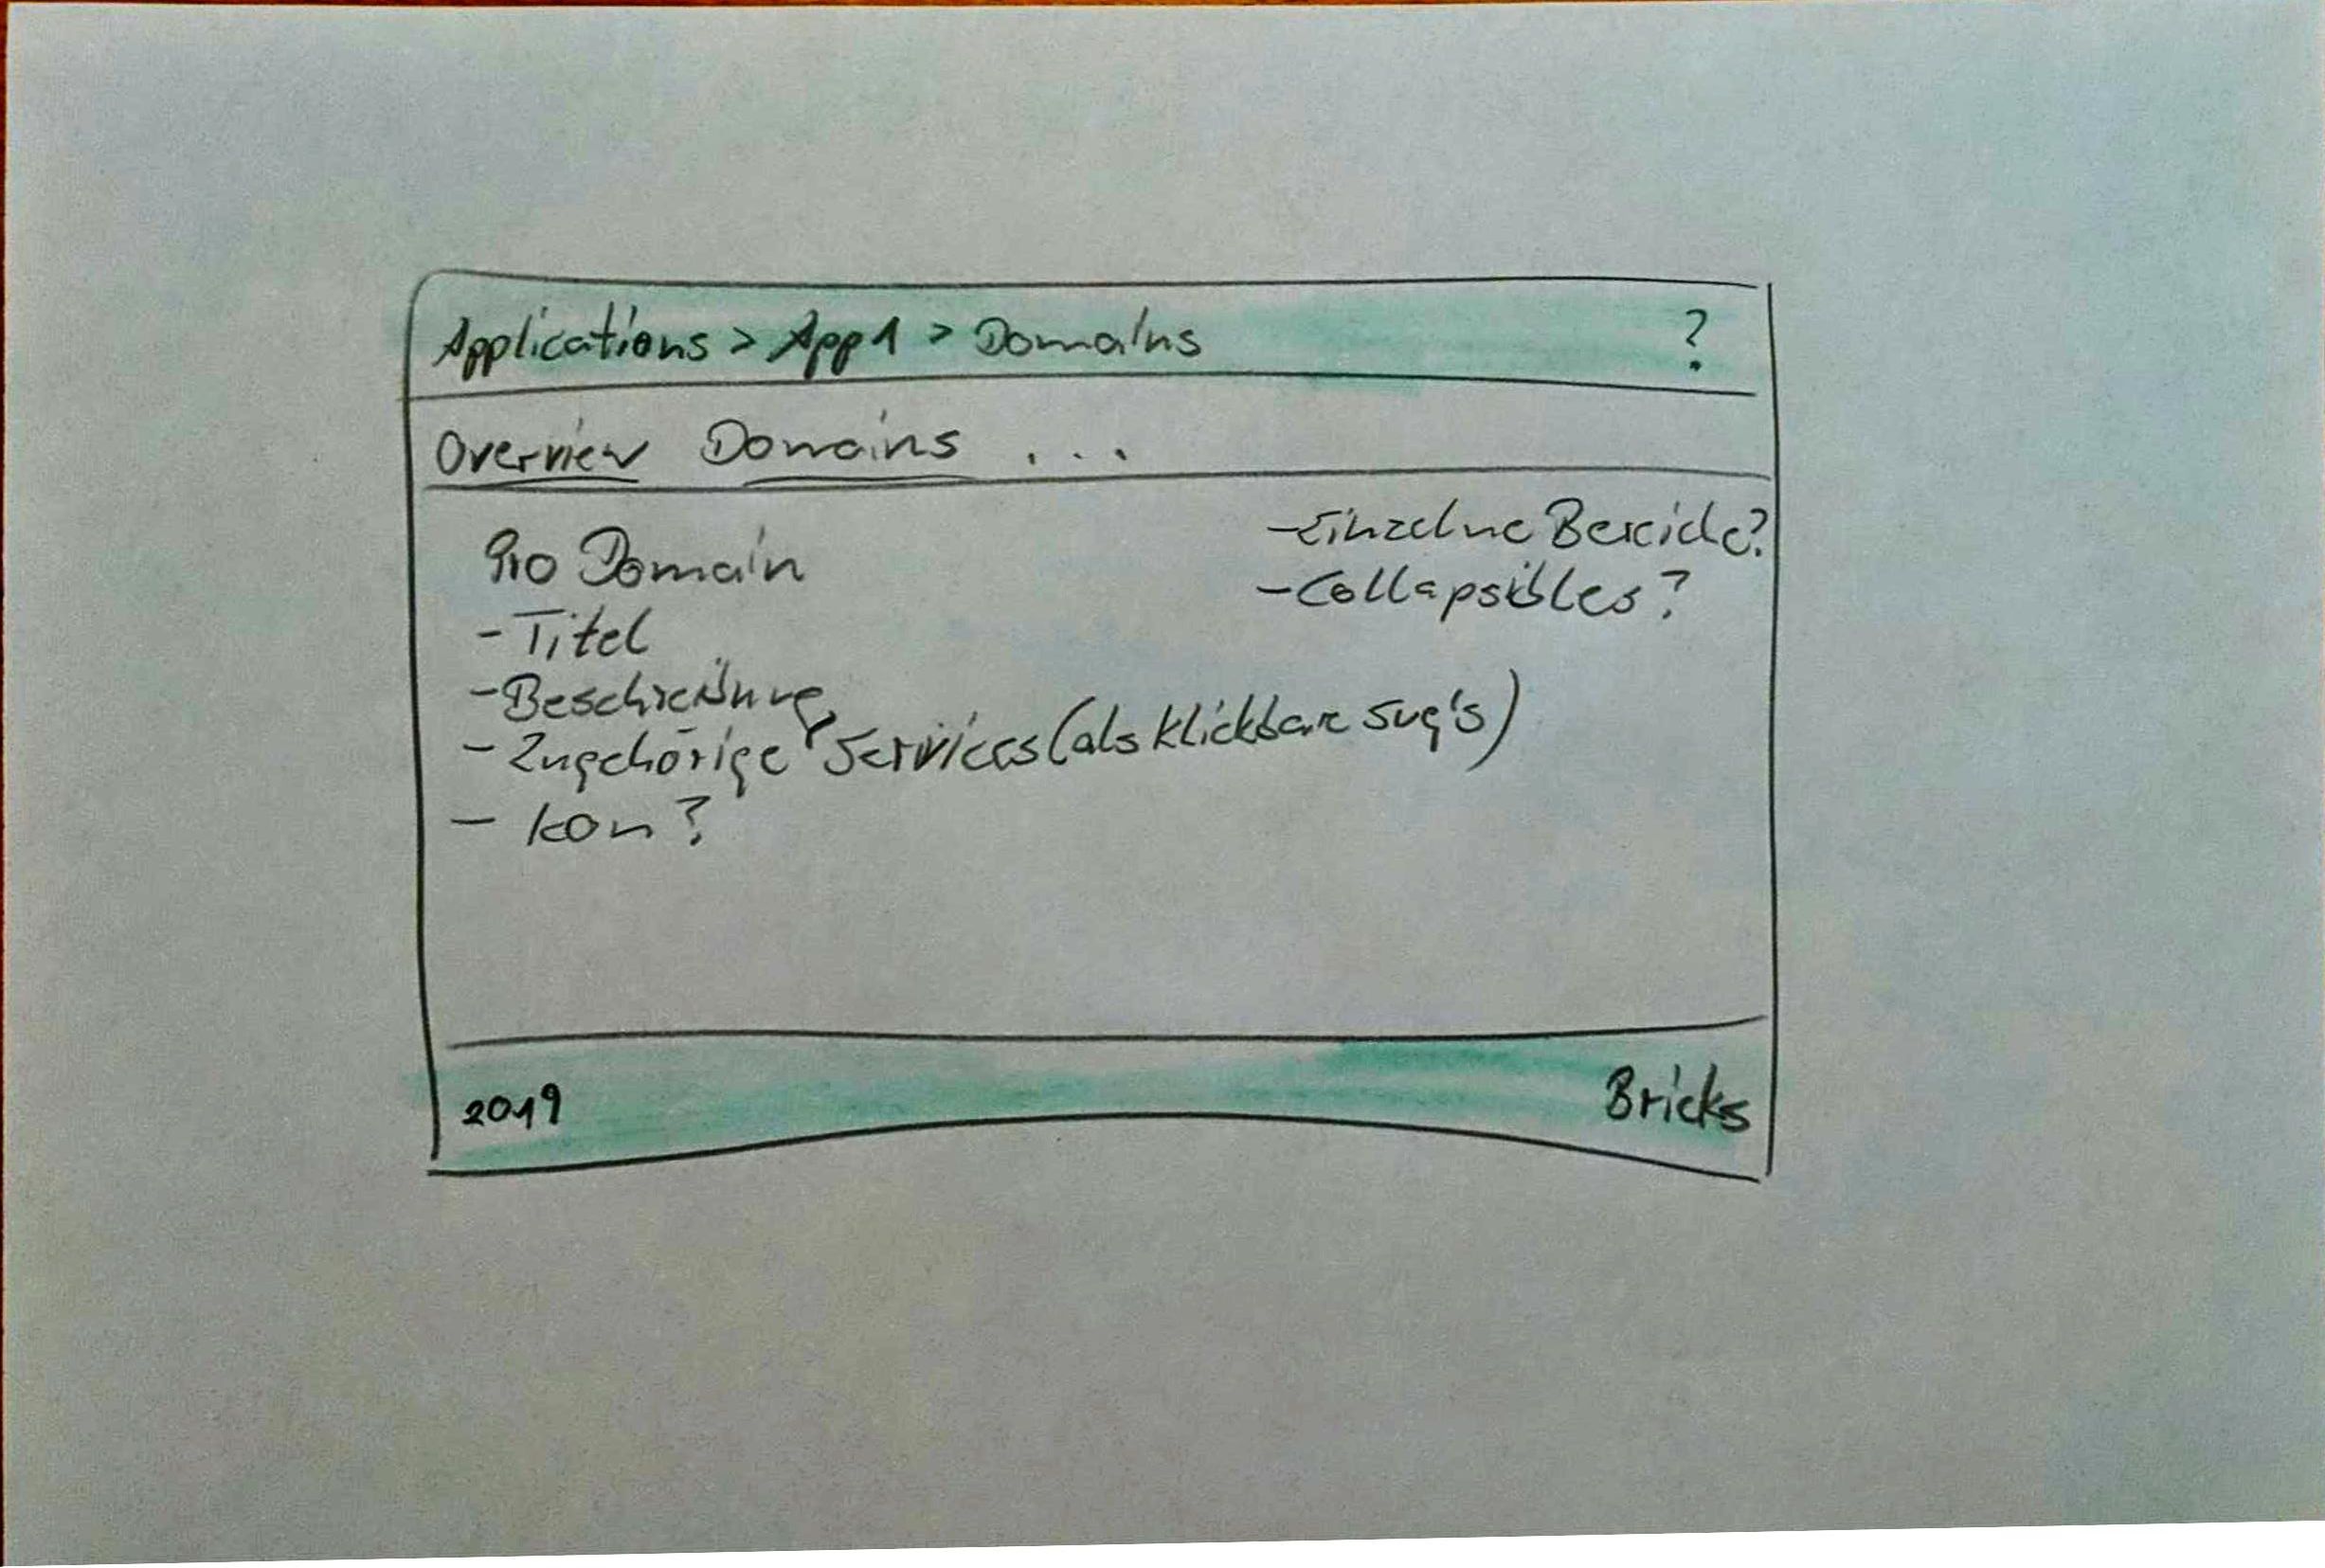 Applications > App1 > Domains ?
Overview Domains ...
Pro Domain
- Titel
- Beschreibung
- Zugehörige Services (als klickbare svg's)
- Ikon?
- Einzelne Bereiche?
- Collapsibles?
2019 Bricks